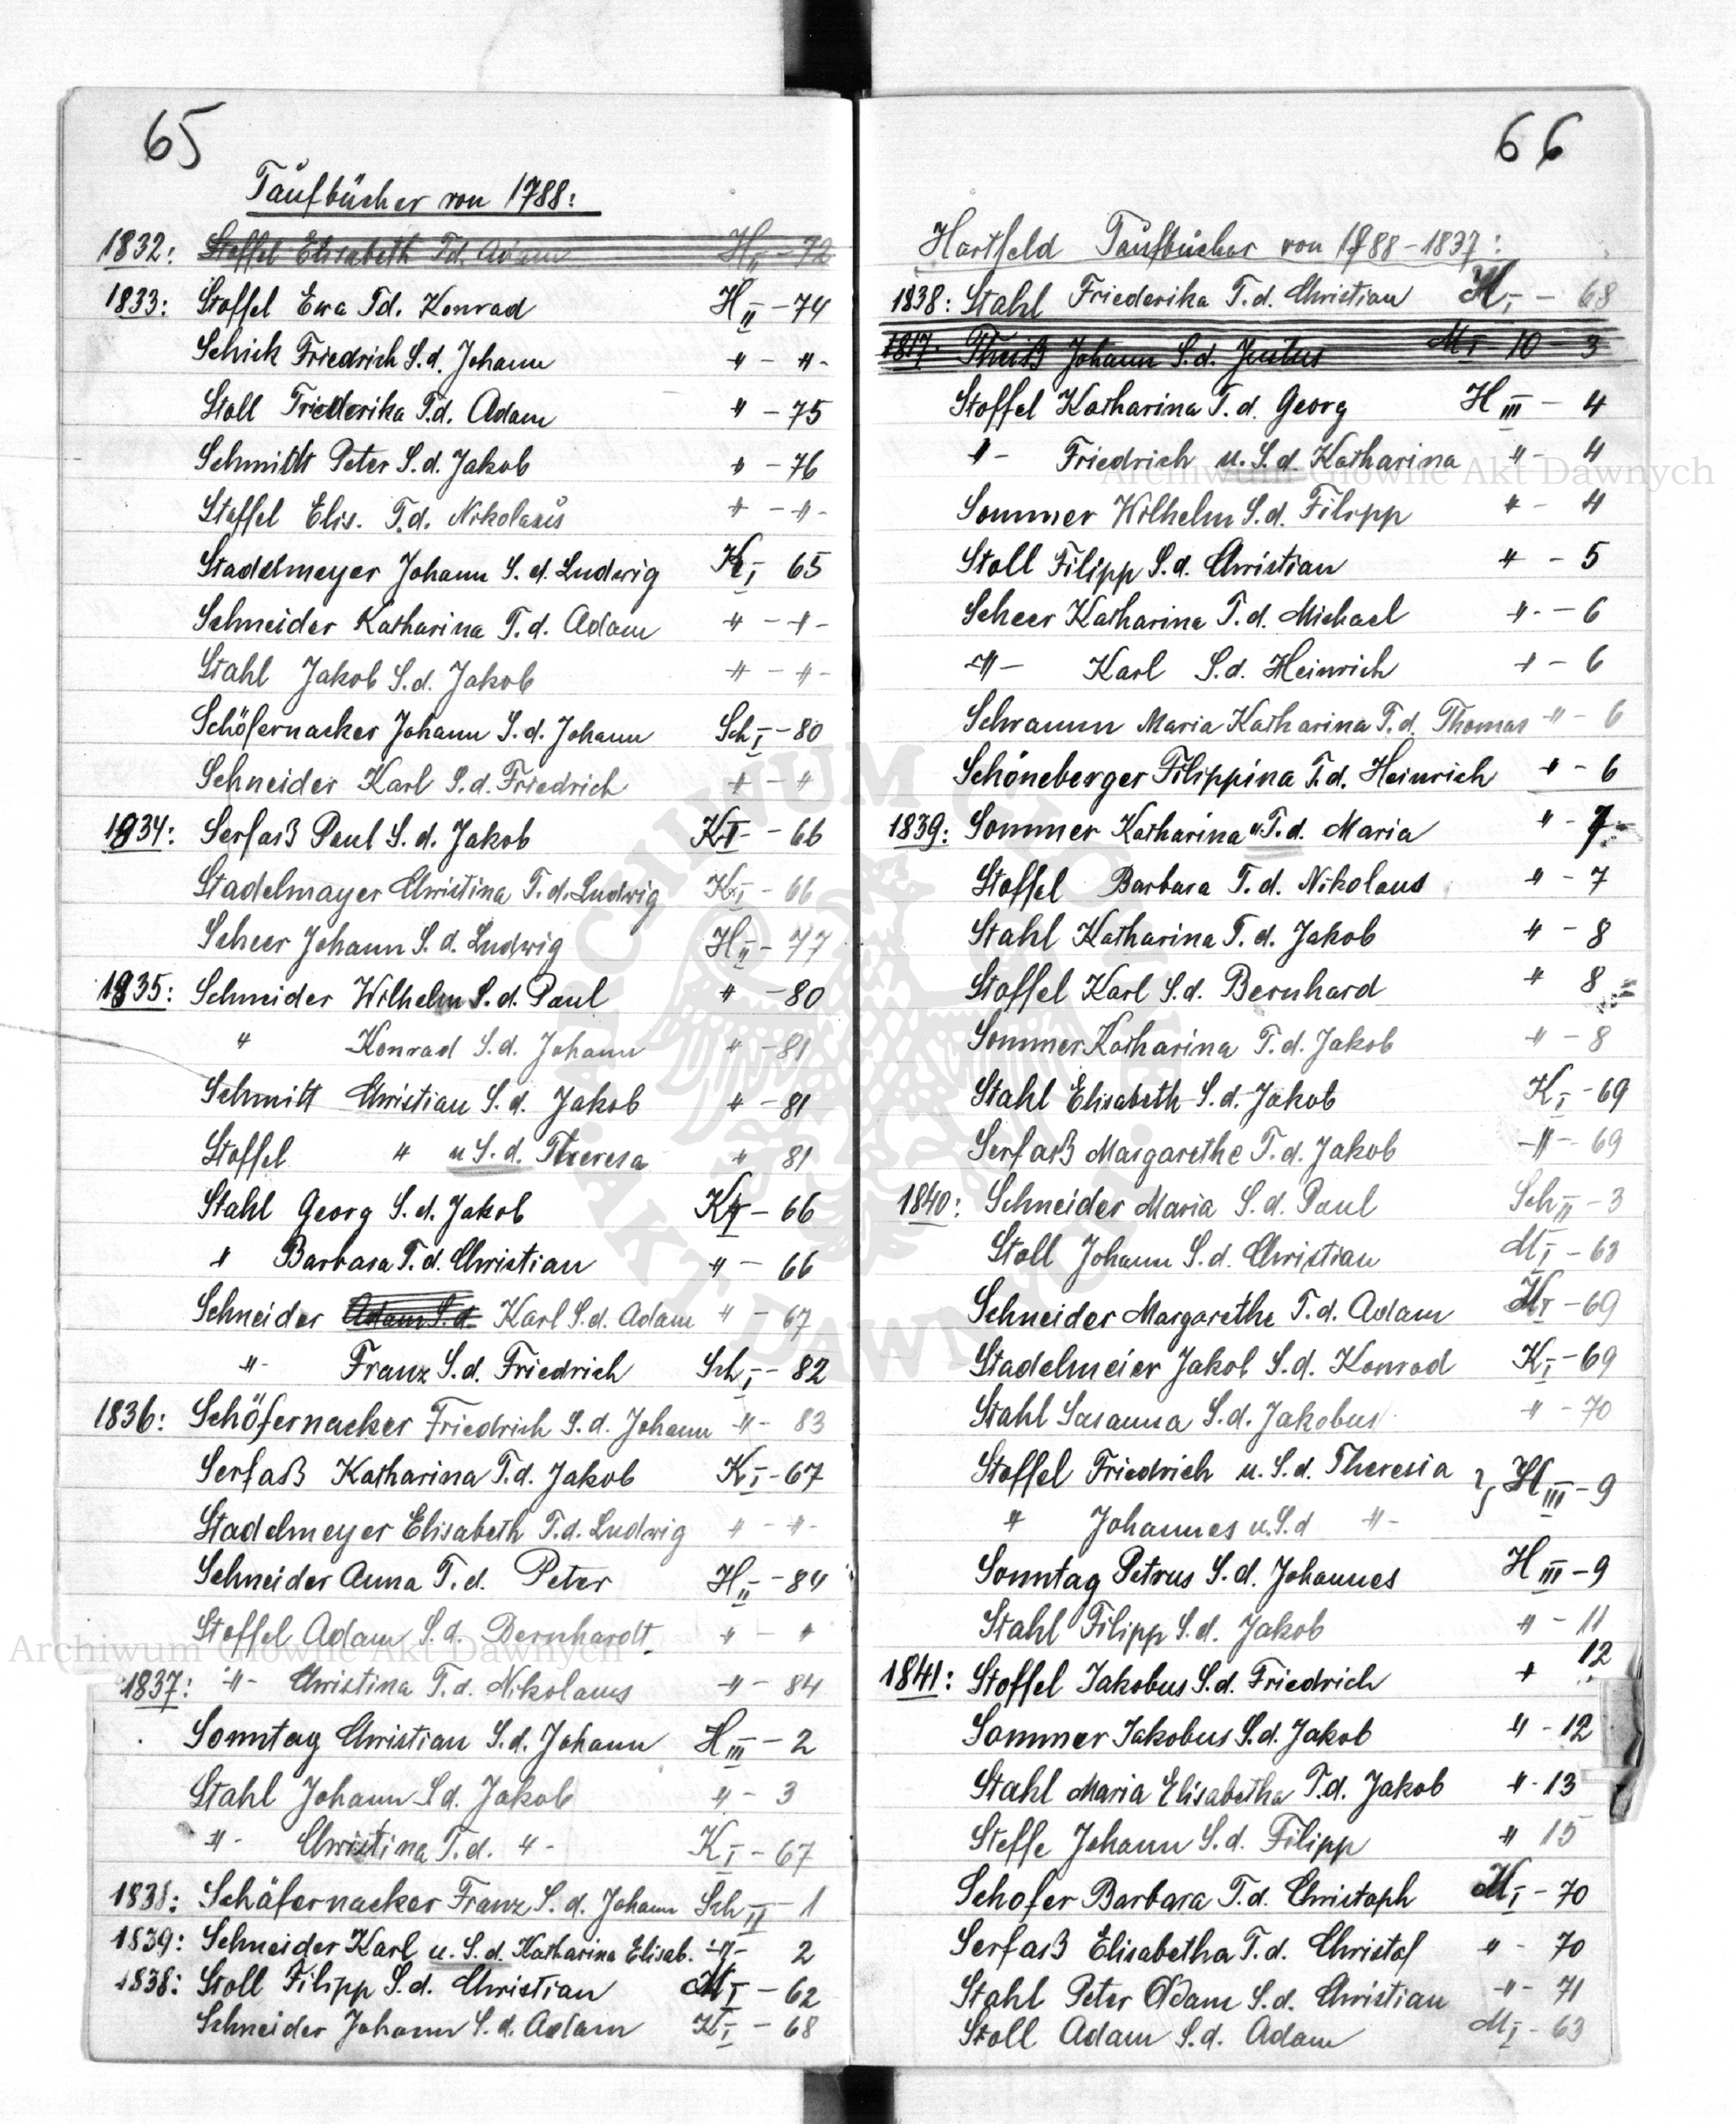 65
Taufbücher von 1788:
1832: Stoffel Elisabeth Td. Adam H II - 72
1833: Stoffel Ewa Td. Konrad H II - 74
Schick Friedrich S.d. Johann " - " -
Stoll Friederika T.d. Adam " - 75
Schmitt Peter S.d. Jakob " - 76
Stoffel Elis. T.d. Nikolaus " - " -
Stadelmeyer Johann S.d. Ludwig K I 65
Schneider Katharina T.d. Adam " - " -
Stahl Jakob S.d. Jakob " - " -
Schöfernacker Johann S.d. Johann Sch I - 80
Schneider Karl S.d. Friedrich " - "
1834: Serfaß Paul S.d. Jakob K I - 66
Stadelmayer Christina T.d. Ludwig K I - 66
Scheer Johann S.d. Ludwig H II - 77
1835: Schneider Wilhelm S.d. Paul " - 80
" Konrad S.d. Johann " - 81
Schmitt Christian S.d. Jakob " - 81
Stoffel " u S.d. Theresa " 81
Stahl Georg S.d. Jakob K I - 66
" Barbara T.d. Christian " - 66
Schneider Adam S.d. Karl S.d. Adam " - 67
" - Franz S.d. Friedrich Sch I - 82
1836: Schöfernacker Friedrich S.d. Johann " - 83
Serfaß Katharina T.d. Jakob K I - 67
Stadelmeyer Elisabeth T.d. Ludwig " - " -
Schneider Anna T.d. Peter H II - 84
Stoffel Adam S.d. Bernhardt " - "
1837: " - Christina T.d. Nikolaus " - 84
Sonntag Christian S.d. Johann H III - 2
Stahl Johann S.d. Jakob " - 3
" - Christina T.d. " - K I - 67
1838: Schäfernacker Franz S.d. Johann Sch II 1
1839: Schneider Karl u. S.d. Katharina Elisab. - " - 2
1838: Stoll Filipp S.d. Christian M I - 62
Schneider Johann S.d. Adam K I - 68
66
Hartfeld Taufbücher von 1788 - 1837:
1838: Stahl Friederika T.d. Christian K I - 68
1817. Theiß Johann S.d. Justus M I 10 - 3
Stoffel Katharina T.d. Georg H III - 4
" - Friedrich u. S.d. Katharina " - 4
Sommer Wilhelm S.d. Filipp " - 4
Stoll Filipp S.d. Christian " - 5
Scheer Katharina T.d. Michael " - 6
- " - Karl S.d. Heinrich " - 6
Schramm Maria Katharina T.d. Thomas " - 6
Schöneberger Filippina T.d. Heinrich " - 6
1839: Sommer Katharina u T.d. Maria " - 7
Stoffel Barbara T.d. Nikolaus " - 7
Stahl Katharina T.d. Jakob " - 8
Stoffel Karl S.d. Bernhard " 8
Sommer Katharina T.d. Jakob " - 8
Stahl Elisabeth S.d. Jakob K I - 69
Serfaß Margarethe T.d. Jakob - " - 69
1840: Schneider Maria S.d. Paul Sch II - 3
Stoll Johann S.d. Christian M I - 63
Schneider Margarethe T.d. Adam K I - 69
Stadelmeier Jakob S.d. Konrad K I - 69
Stahl Susanna S.d. Jakobus " - 70
Stoffel Friedrich u. S.d. Theresia } H III - 9
" Johannes u. S.d " -
Sonntag Petrus S.d. Johannes H III - 9
Stahl Filipp S.d. Jakob " - 11
1841: Stoffel Jakobus S.d. Friedrich " 12
Sommer Jakobus S.d. Jakob " - 12
Stahl Maria Elisabetha T.d. Jakob " - 13
Steffe Johann S.d. Filipp " 15
Schofer Barbara T.d. Christoph K I - 70
Serfaß Elisabetha T.d. Christof " - 70
Stahl Peter Adam S.d. Christian - " - 71
Stoll Adam S.d. Adam M I - 63
Archiwum Główne Akt Dawnych
Archiwum Główne Akt Dawnych
ARCHIWUM GŁÓWNE AKT DAWNYCH